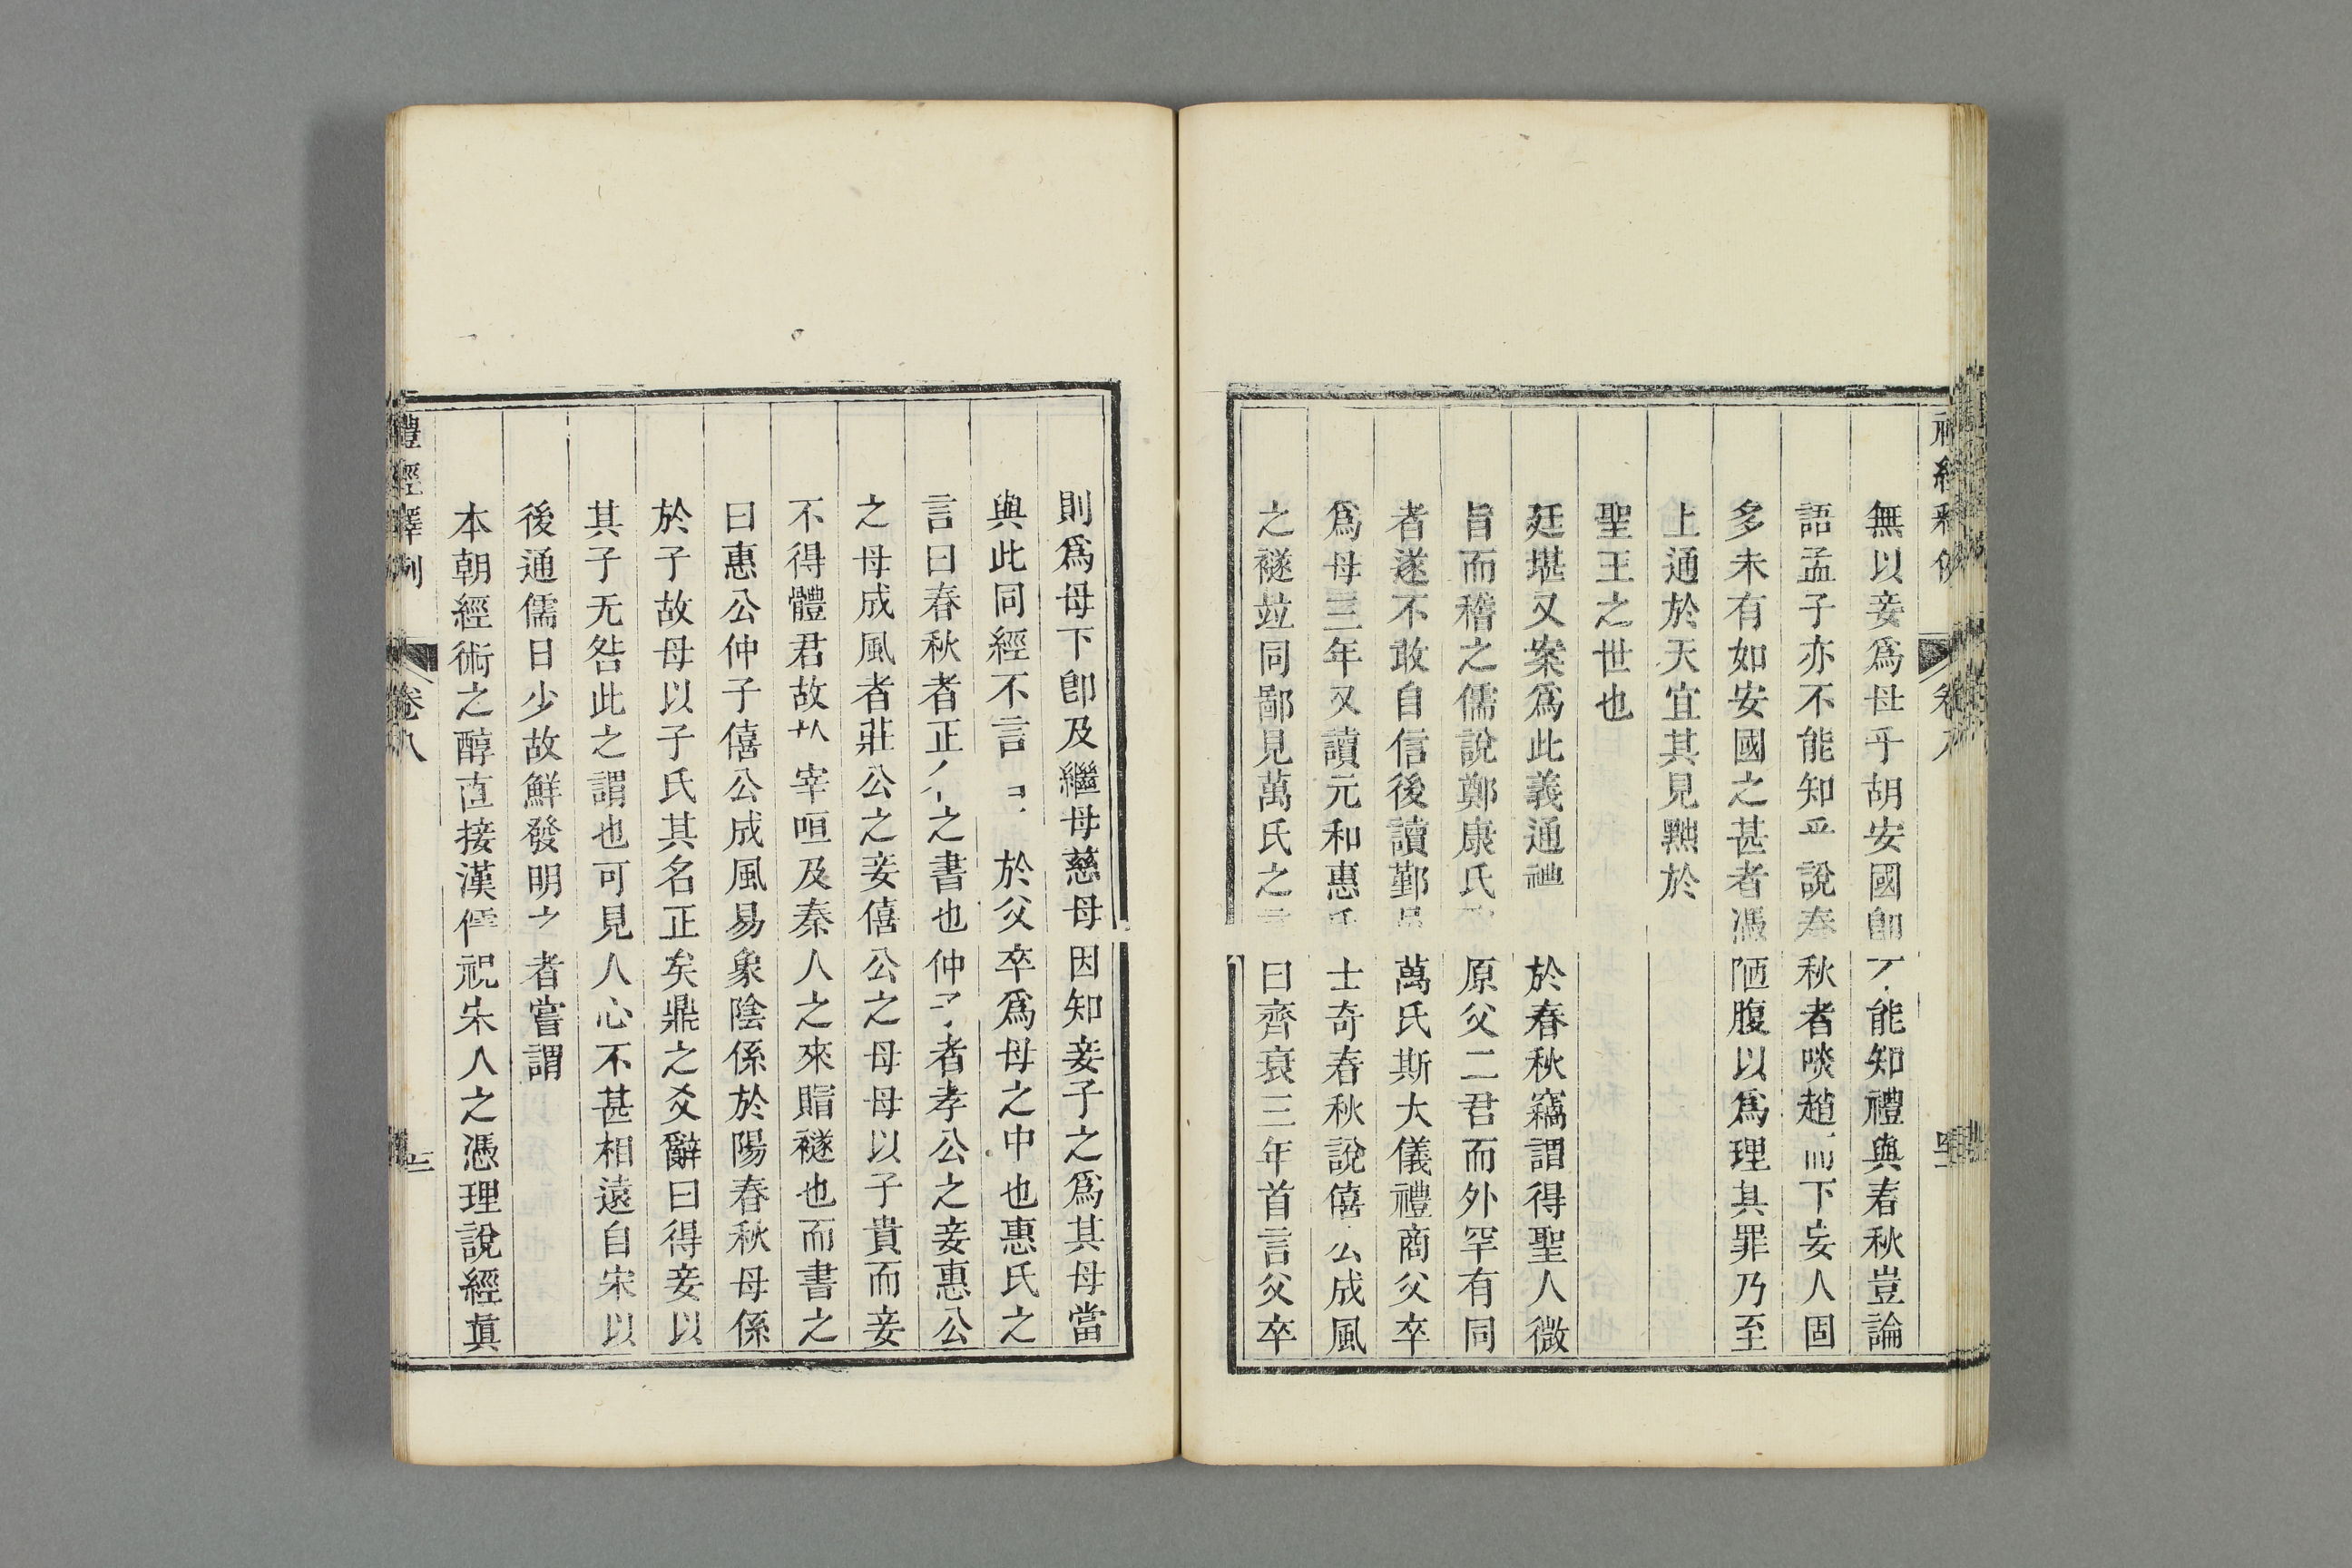 無以妾爲母乎胡安國卽不能知禮與春秋豈論
語孟子亦不能知乎說春秋者啖趙而下妄人固
多未有如安國之甚者憑陋腹以爲理其罪乃至
上通於天宜其見黜於
聖王之世也
廷堪又案爲此義通禮於春秋竊謂得聖人微
旨而稽之儒說鄭康氏原父二君而外罕有同
者遂不敢自信後讀鄞萬氏斯大儀禮商父卒
爲母三年又讀元和惠氏士奇春秋說僖公成風
之襚竝同鄙見萬氏之言曰齊衰三年首言父卒
則爲母下卽及繼母慈母因知妾子之爲其母當
與此同經不言 於父卒爲母之中也惠氏之
言曰春秋者正名之書也仲子者孝公之妾惠公
之母成風者莊公之妾僖公之母母以子貴而妾
不得體君故於宰咺及秦人之來賵襚也而書之
曰惠公仲子僖公成風易象陰係於陽春秋母係
於子故母以子氏其名正矣鼎之爻辭曰得妾以
其子无咎此之謂也可見人心不甚相遠自宋以
後通儒日少故鮮發明之者嘗謂
本朝經術之醇直接漢儒視宋人之憑理說經眞
禮經釋例 卷八